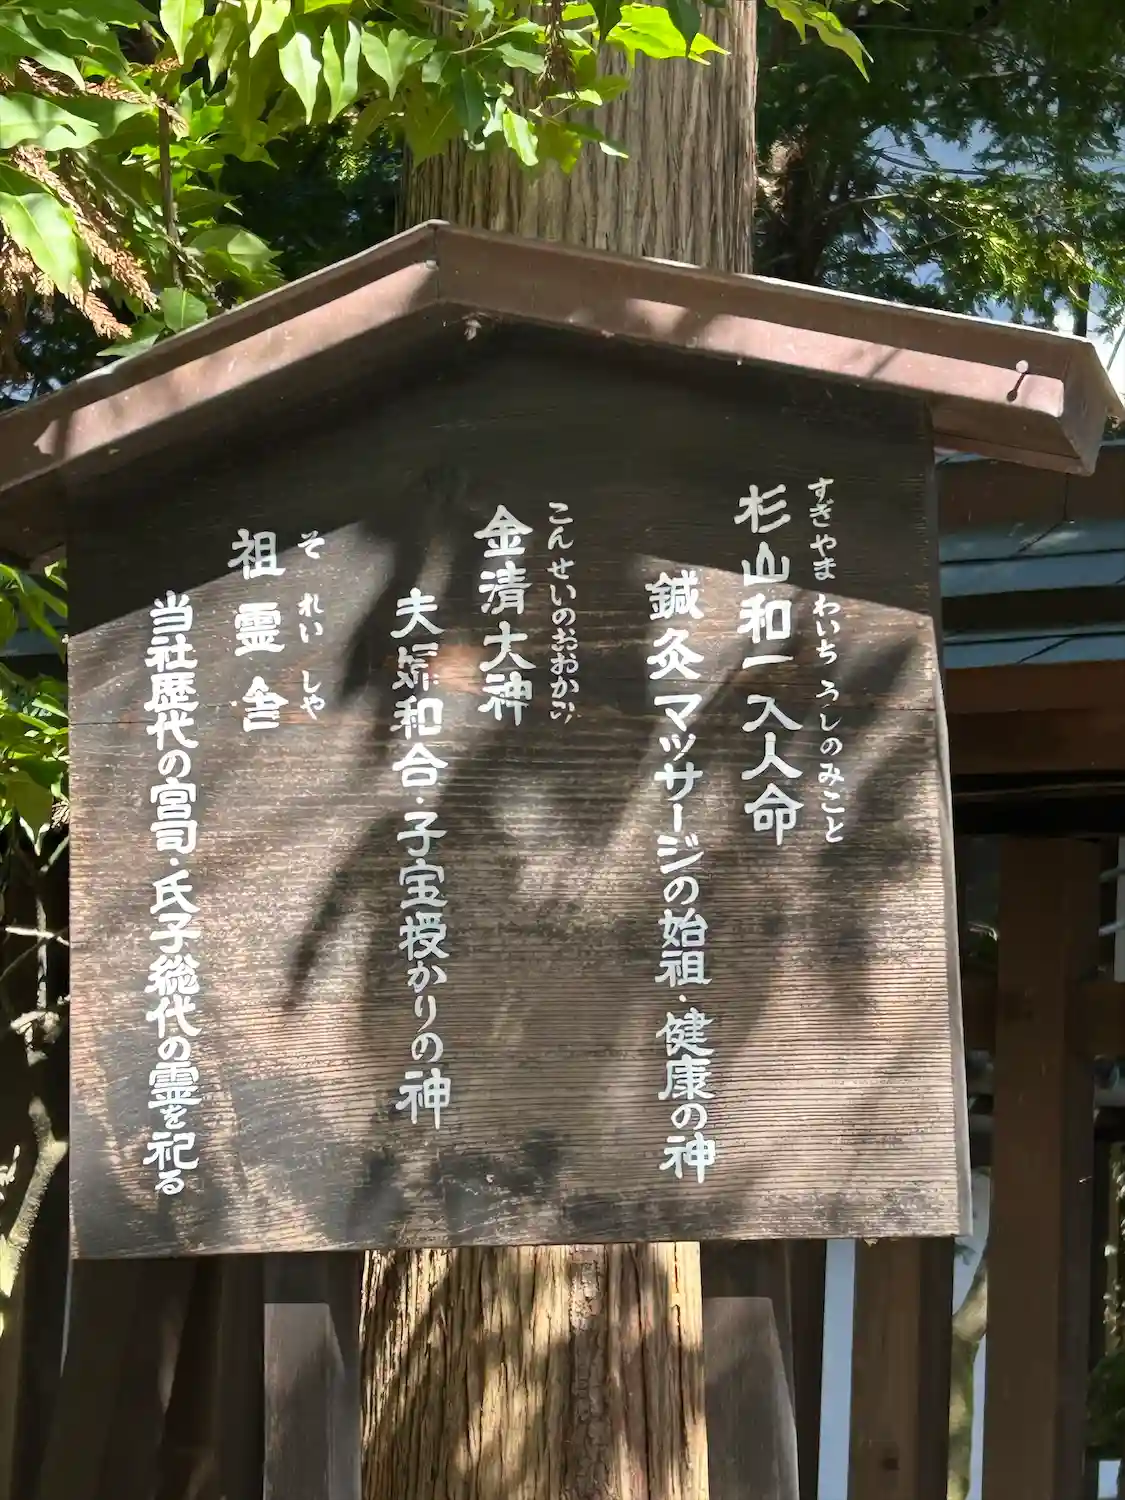 すぎやま わいち うしのみこと
杉山和一大人命
鍼灸マッサージの始祖・健康の神
こんせいのおおかみ
金清大神
夫婦和合・子宝授かりの神
それいしや
祖霊舎
当社歴代の宮司・氏子総代の霊を祀る